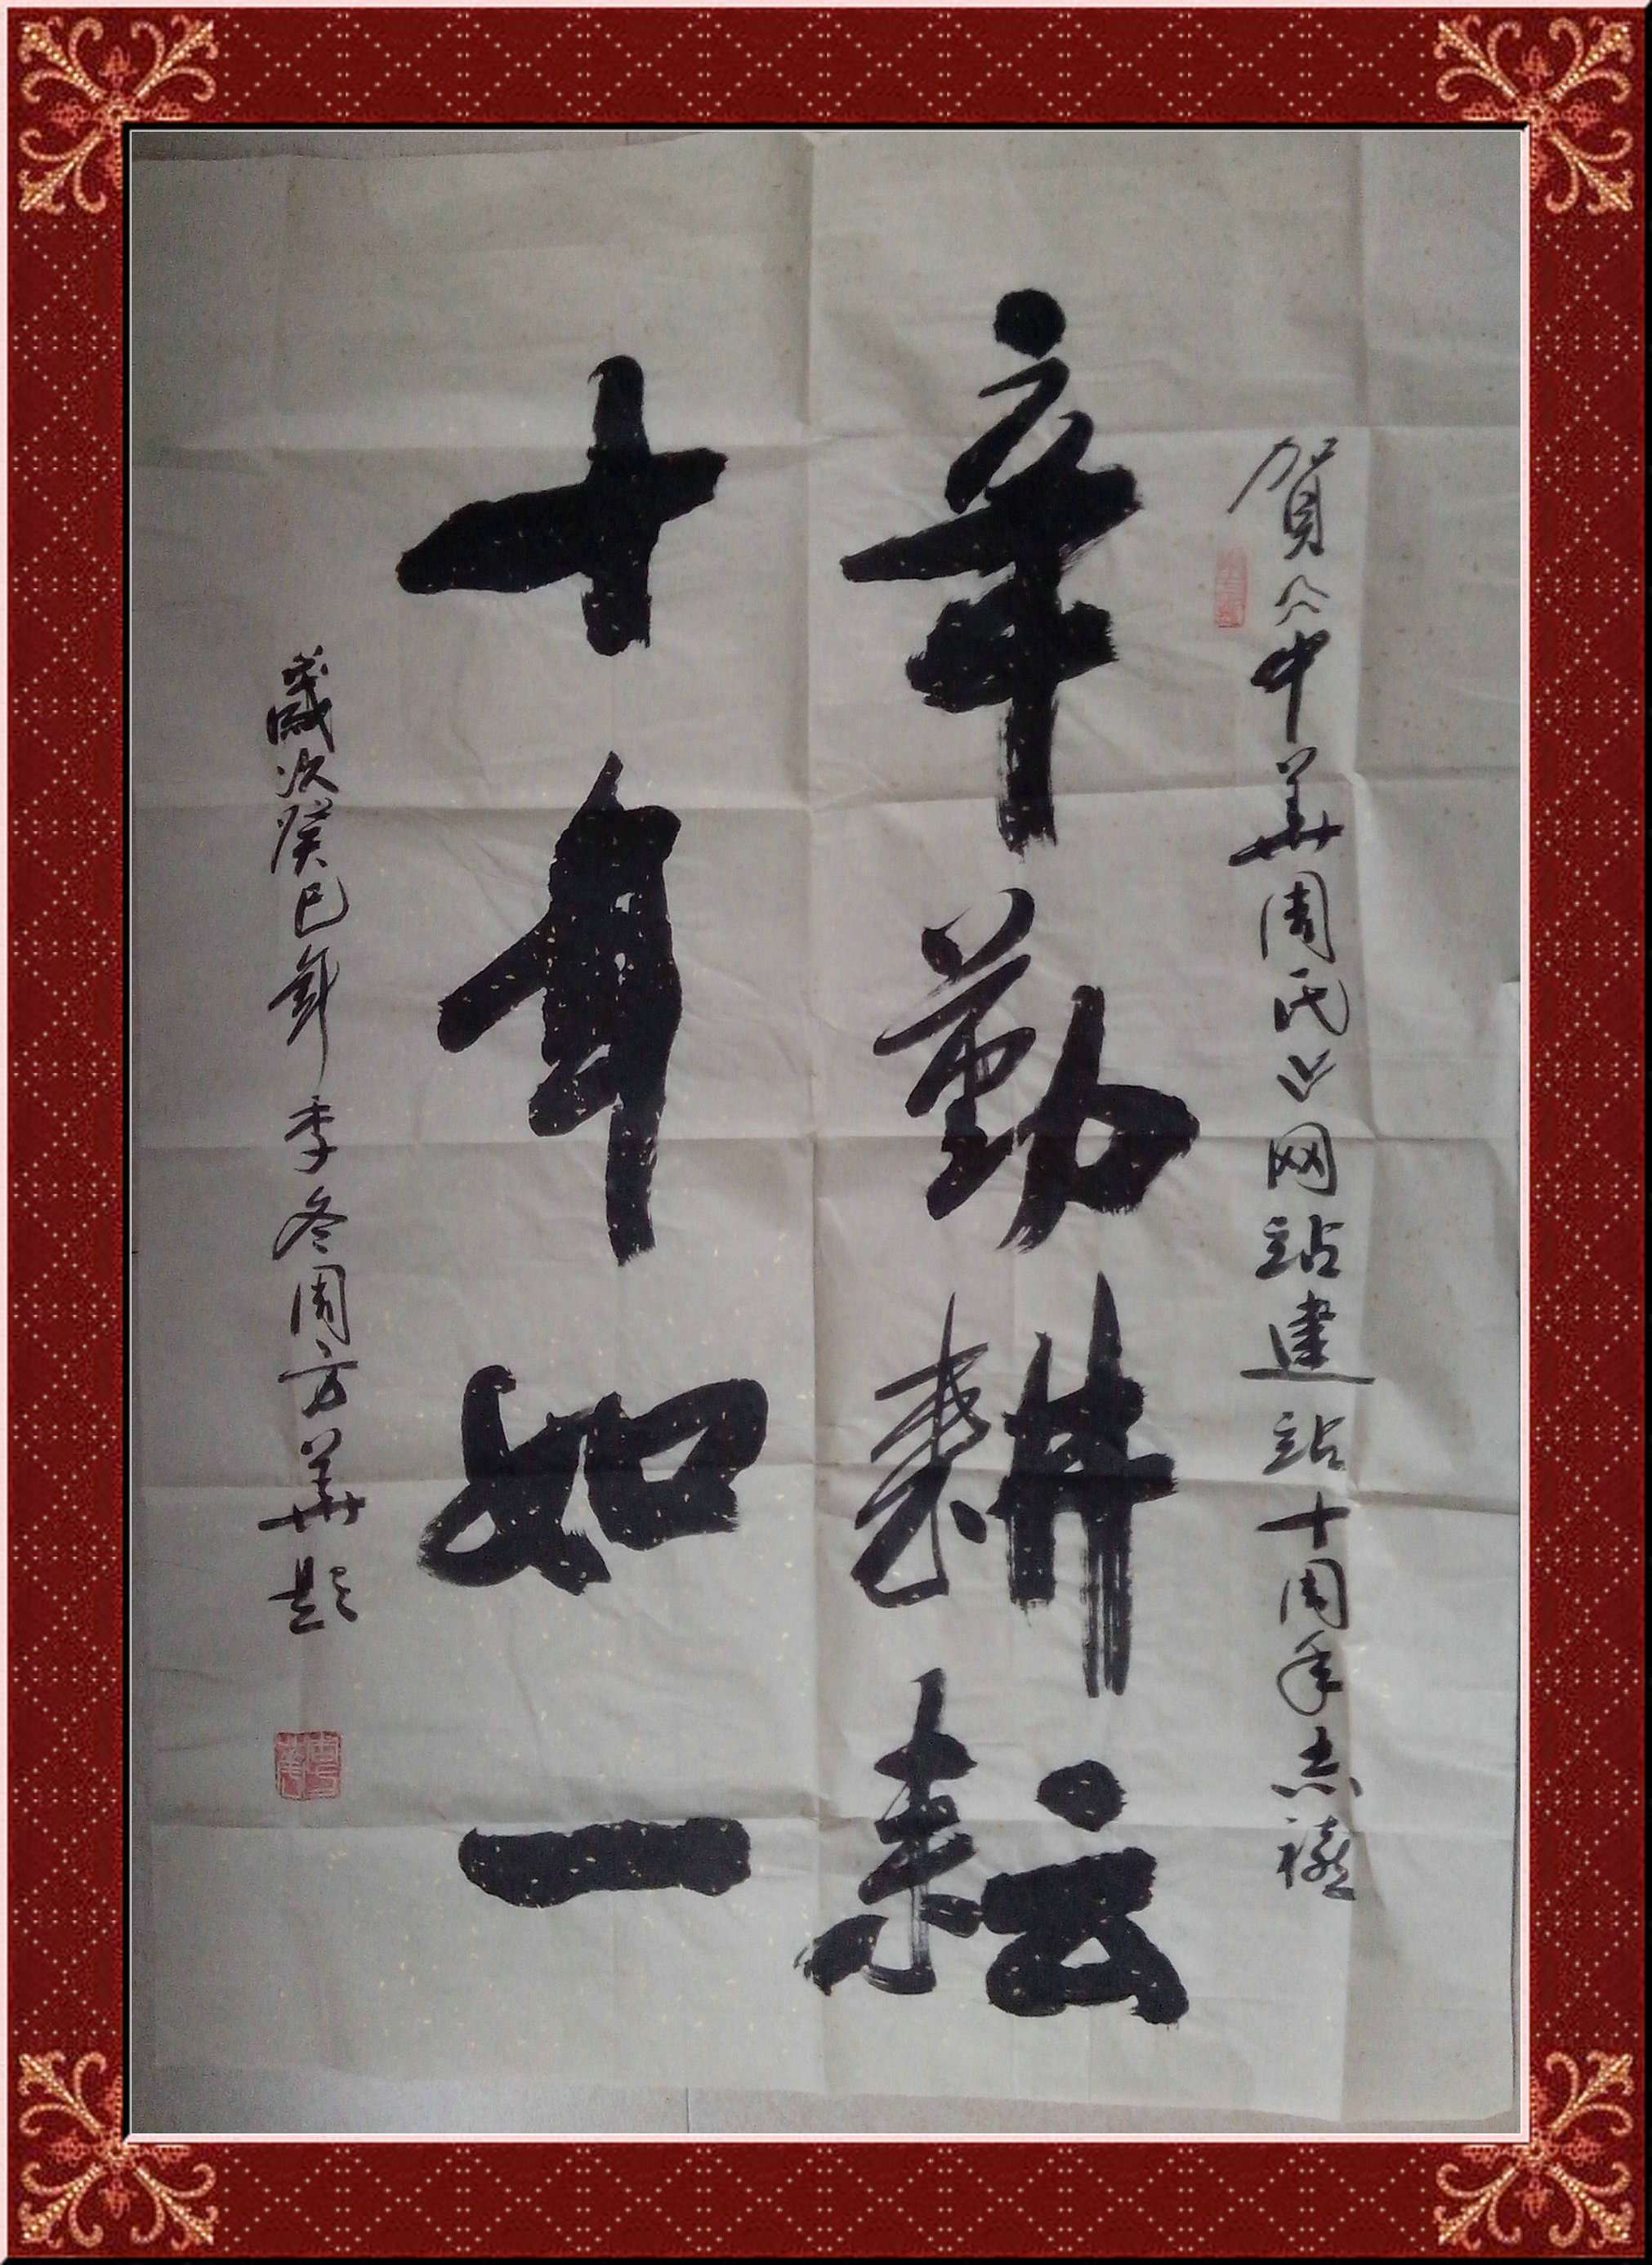 賀《中華周氏》网站建站十周年志禧
辛勤耕耘
十年如一
歲次癸巳年季冬周方華題